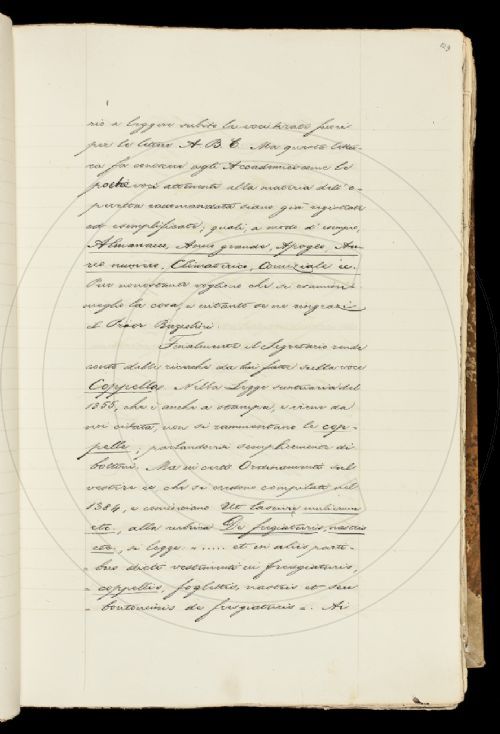 129
rio a leggere subito le voci tirate fuori
per le lettere A B C. Ma questa lette-
ra fa conoscere agli Accademici come le
poche voci attenenti alla materia dell'o-
peretta raccomandata siano già registrate
ed esemplificate, quali, a modo d'esempio,
Almanacco, Anno grande, Apogeo, Au-
reo numero, Climaterico, Comiziale ec.
Pur nonostante vogliono che si esamini
meglio la cosa, e intanto se ne ringrazi
il Prior Bagnolini.
Finalmente il Segretario rende
conto delle ricerche da lui fatte sulla voce
Coppella. Nella Legge suntuaria del
1355, che è anche a stampa, e viene da
noi citata, non si rammentano le cop-
pelle, parlandovisi semplicemente di
bottoni. Ma in certo Ordinamento sul
vestire ec. che si credono compilate nel
1384, e cominciano Ut lascive mulierum
etc., alla rubrica De fregiaturis, nastris
etc., si legge « ..... et in aliis parti-
« bus dicti vestimenti cu fregiaturis,
« coppellis, foglettis, nastris et seu
« bottoncinis de fregiaturis ». Ai